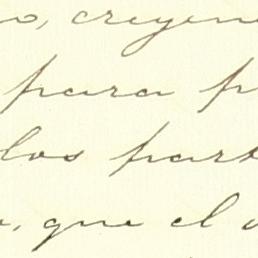 o, creyen
para p
los part
, que el